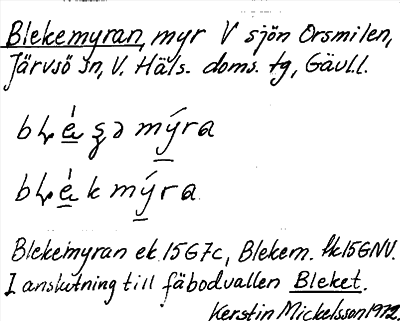 Blekemyran, myr V sjön Orsmilen,
Järvsö sn, V. Häls. doms. tg, Gävl.l.
mýra
mýra
Blekemyran ek. 15G7c, Blekem. hk15GNV.
I anslutning till fäbodvallen Bleket.
Kerstin Mickelsson 1972.